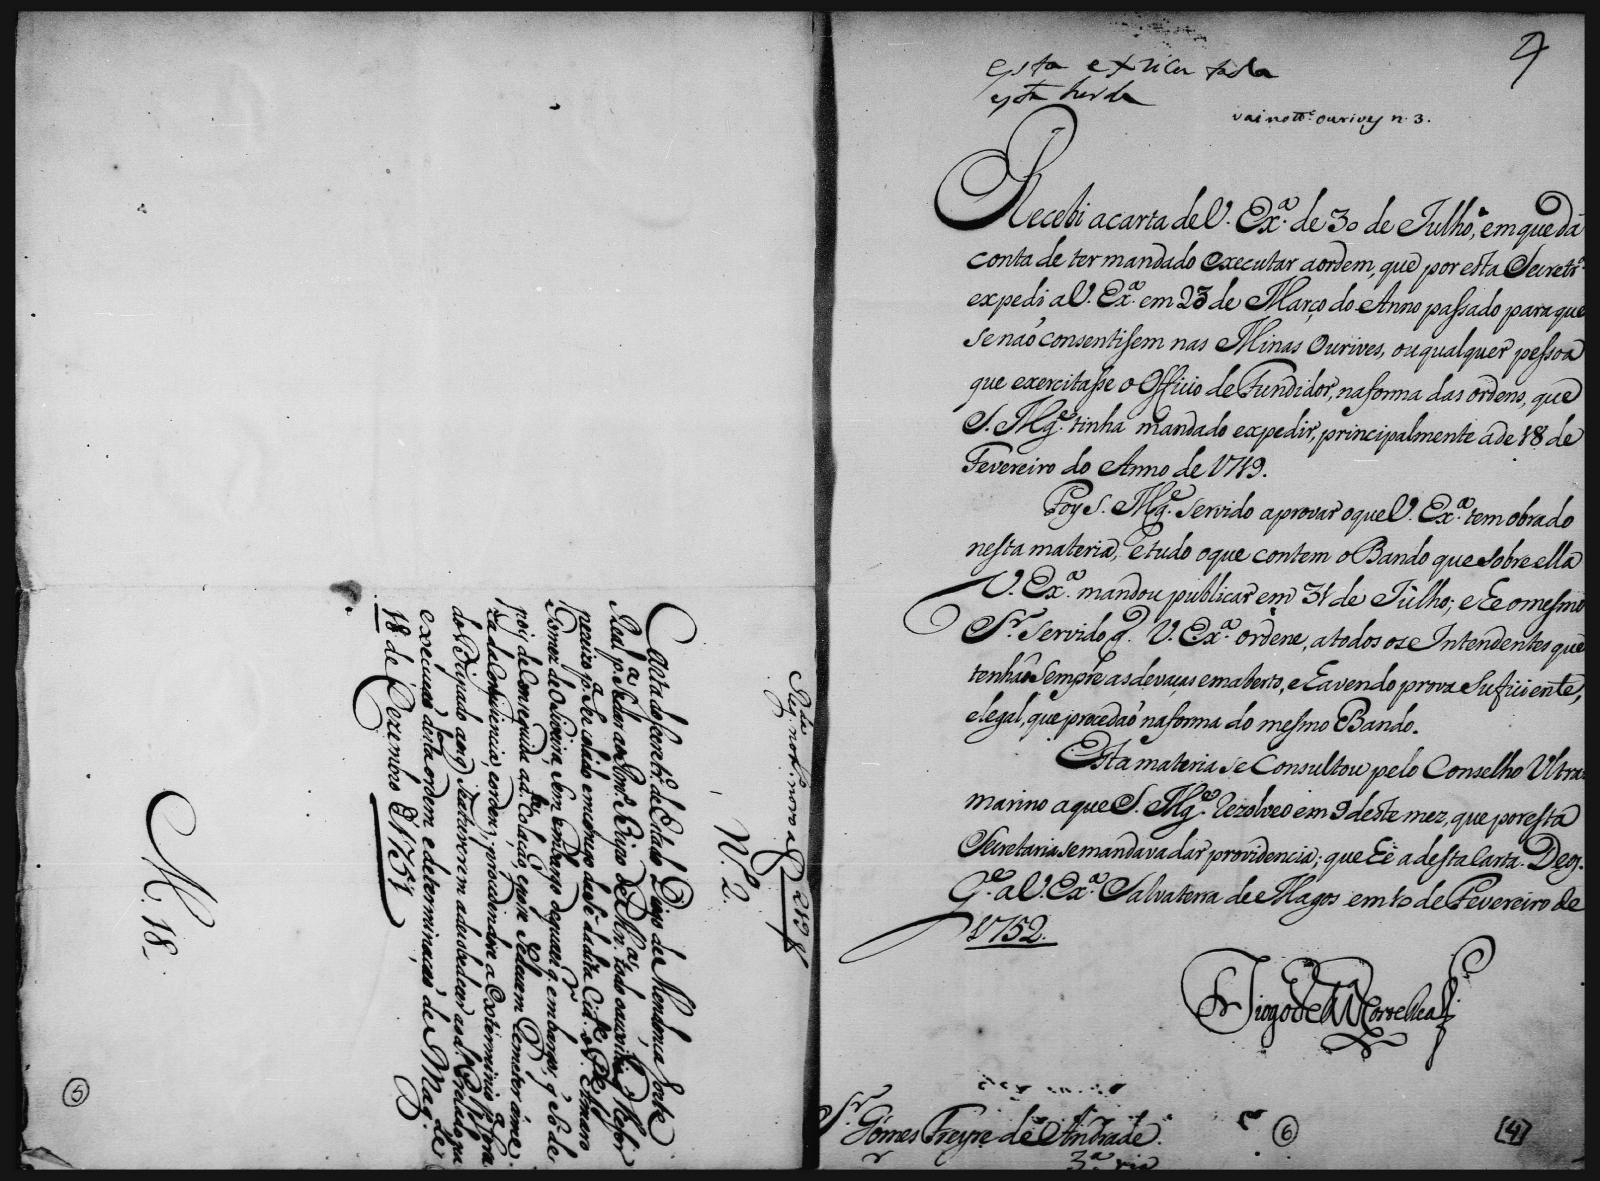 4
esta exzicutada
esta herda
vai no mc. ourives n. 3.
Recebi a carta de V. Exª. de 30 de Julho, em que dá
conta de ter mandado executar a ordem, que por esta Secretrª.
expedi a V. Exª. em 23 de Março do Anno passado para que
se naó consentisem nas Minas Ourives, ou qualquer pessoa
que exercitasse o Officio de Fundidor, na forma das ordens, que
S. Mgᵉ. tinha mandado expedir, principalmente a de 18 de
Fevereiro do Anno de 1719.
Foy S. Mgᵉ. servido aprovar o que V. Exª. tem obrado
nesta materia, e tudo o que contem o Bando que sobre ella
V. Exª. mandou publicar em 31 de Julho; e he o mesmo
Sʳ. servido q̃. V. Exª. ordene, a todos os Intendentes que
tenhaõ sempre as devaças em aberto, e havendo prova suficiente,
e legal, que procedaó na forma do mesmo Bando.
Esta materia se Consultou pelo Conselho Ultra
marino a que S. Mgᵉ. rezolveo em 9 deste mez, que por esta
Secretaria se mandava dar providencia; que hé a desta Carta. Deos.
Gᵉ. a V. Exª. Salvaterra de Magos em 10 de Fevereiro de
1752.
Diogo de Mᶜᵃ Corte Real
Sʳ. Gomes Freyre de Andrade.
3ª via
6
[4]
Regda. no Lº. novo a f 212 v
N. 2.
Carta do Secretrº. de Estado Diogo de Mendonça Corte
Real pª.
Gomez de Oliveira, sem embargo de quaesqr. embargos, q̃ só de
pois de Conseguida a dª. Colaçaõ,
do Bispado
execuçaõ desta ordem e determinaçaõ de Magᵉ. de
18 de Dezembro de 1751
M. 18
5